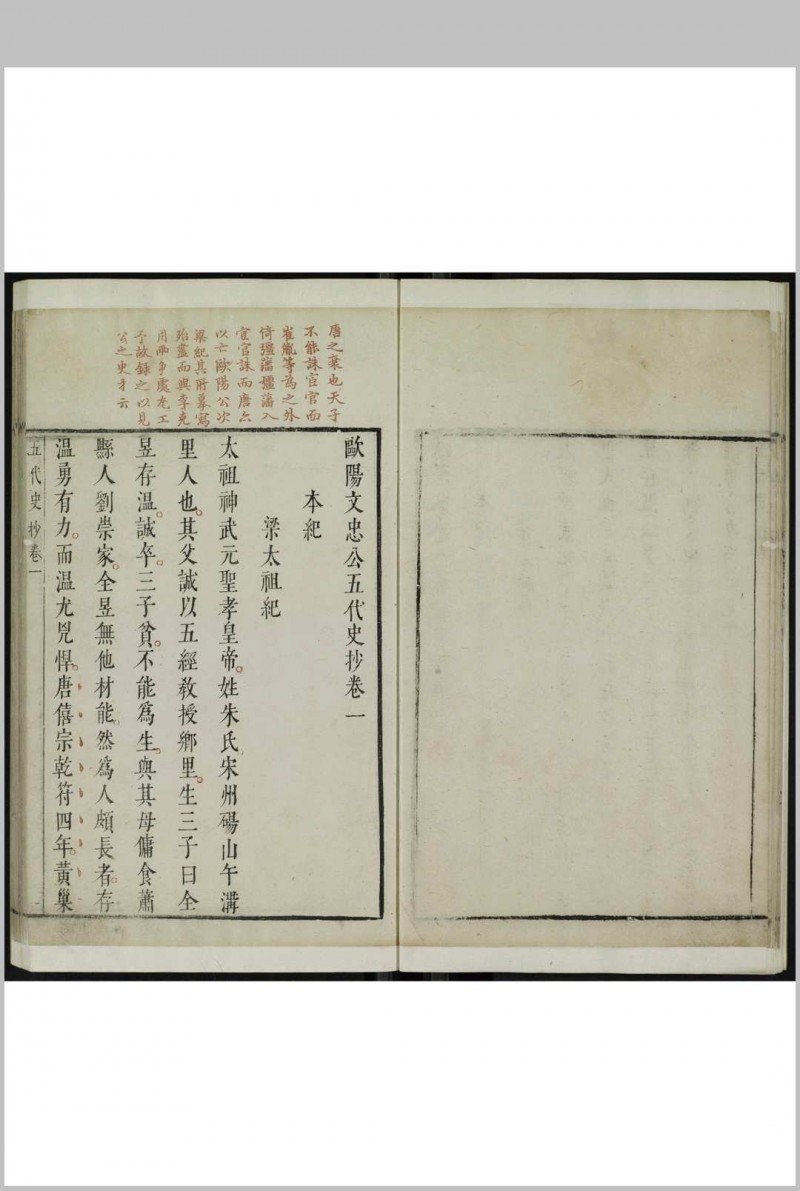 唐之衰也天子
不能誅宦官而
崔胤等為之外
倚彊藩彊藩入
宦官誅而唐亦
以亡歐陽公次
梁紀其所摹寫
殆盡而與李克
用兩爭處尤工
予故錄之以見
公之史才云
歐陽文忠公五代史抄卷一
本紀
梁太祖紀
太祖神武元聖孝皇帝姓朱氏宋州碭山午溝
里人也其父誠以五經教授鄉里生三子曰全
昱存溫誠卒三子貧不能爲生與其母傭食蕭
縣人劉崇家全昱無他材能然爲人頗長者存
溫勇有力而溫尤兇悍唐僖宗乾符四年黃巢
五代史抄卷一
一